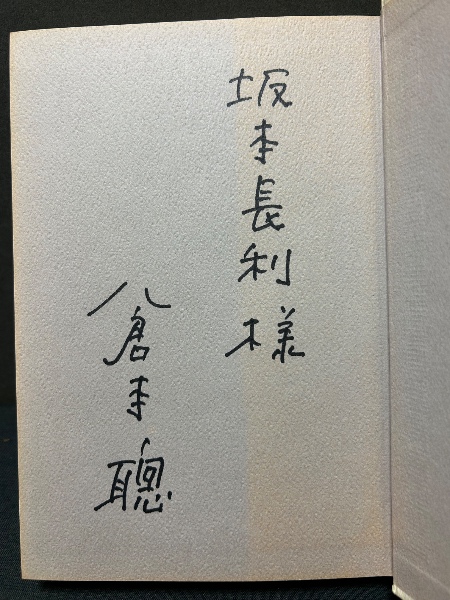 坂本長利様
倉本聰